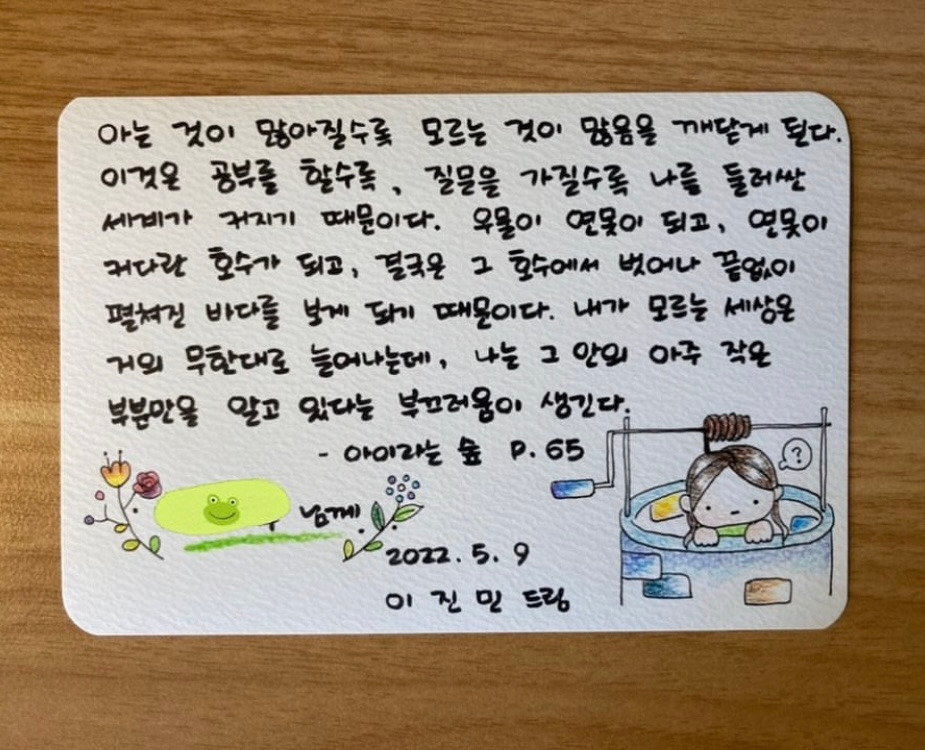 아는 것이 많아질수록 모르는 것이 많음을 깨닫게 된다.
이것은 공부를 할수록, 질문을 가질수록 나를 둘러싼
세계가 커지기 때문이다. 우물이 연못이 되고, 연못이
커다란 호수가 되고, 결국은 그 호수에서 벗어나 끝없이
펼쳐진 바다를 보게 되기 때문이다. 내가 모르는 세상은
거의 무한대로 늘어나는데, 나는 그 안의 아주 작은
부분만을 알고 있다는 부끄러움이 생긴다.
- 아이라는 숲 P. 65
?
님께.
2022. 5. 9
이 진 민 드림